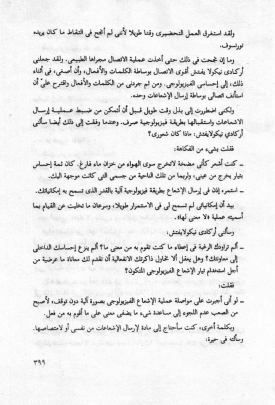 ولقد استغرق العمل التحضيري وقتا طويلا لأنني لم أنجح في التقاط ما كان يريده
تورسوف.
وما إن نجحت في ذلك حتى أخذت عملية الاتصال مجراها الطبيعي. ولقد جعلني
أركادي نيكولايفتش أقوى الاتصال بوساطة الكلمات والأفعال، وأن أصغي، في أثناء
ذلك، إلى إحساسي. ومن ثم جردني من الكلمات والأفعال واقترح علي أن
أستأنف اتصالي بوساطة إرسال الإشعاعات وحده.
ولكني اضطررت إلى بذل وقت طويل قبل أن أتمكن من ضبط عملية إرسال
الإشعاعات واستقبالها بطريقة فيزيولوجية صرف. وعندما وفقت إلى ذلك أيضا سألني
أركادي نيكولايفتش:
فقلت بشيء من الفكاهة:
- كنت أشعر كأني مضخة لاتخرج سوى الهواء من خزان ماء فارغ. كان ثمة إحساس
بتيار يخرج من عيني، ولربما من تلك الناحية من جسمي التي كانت موجهة اليك.
- استمر، إذن في إرسال الإشعاع بطريقة فيزيولوجية آلية بالقدر الذي تسمح به إمكانياتك.
بيد أن إمكانياتي لم تسمح لي في الاستمرار طويلا، وسرعان ما تخليت عن القيام بما
أسميته عملية «لا معنى لها».
وسألني أركادي نيكولايفتش:
- ألم تراودك الرغبة في إعطاء ما كنت تقوم به من معنى ما؟ ألم ينزع إحساسك الداخلي
إلى معاونتك؟ وهل يعقل ألا تحاول ذاكرتك الانفعالية أن تقدم لك معاناة ما عرضية من
أجل استخدام تيار الإشعاع الفيزيولوجي المتكون؟
فقلت:
- لو أني أجبرت على مواصلة عملية الإشعاع الفيزيولوجي بصورة آلية دون توقف، لأصبح
من الصعب عدم اللجوء إلى مساعدة شيء ما يضفي معنى على ما أقوم به من فعل.
وبكلمة أخرى، كنت سأحتاج إلى مادة لإرسال الإشعاعات من نفسي أو لامتصاصها.
وسألت في حيرة:
٣٩٩